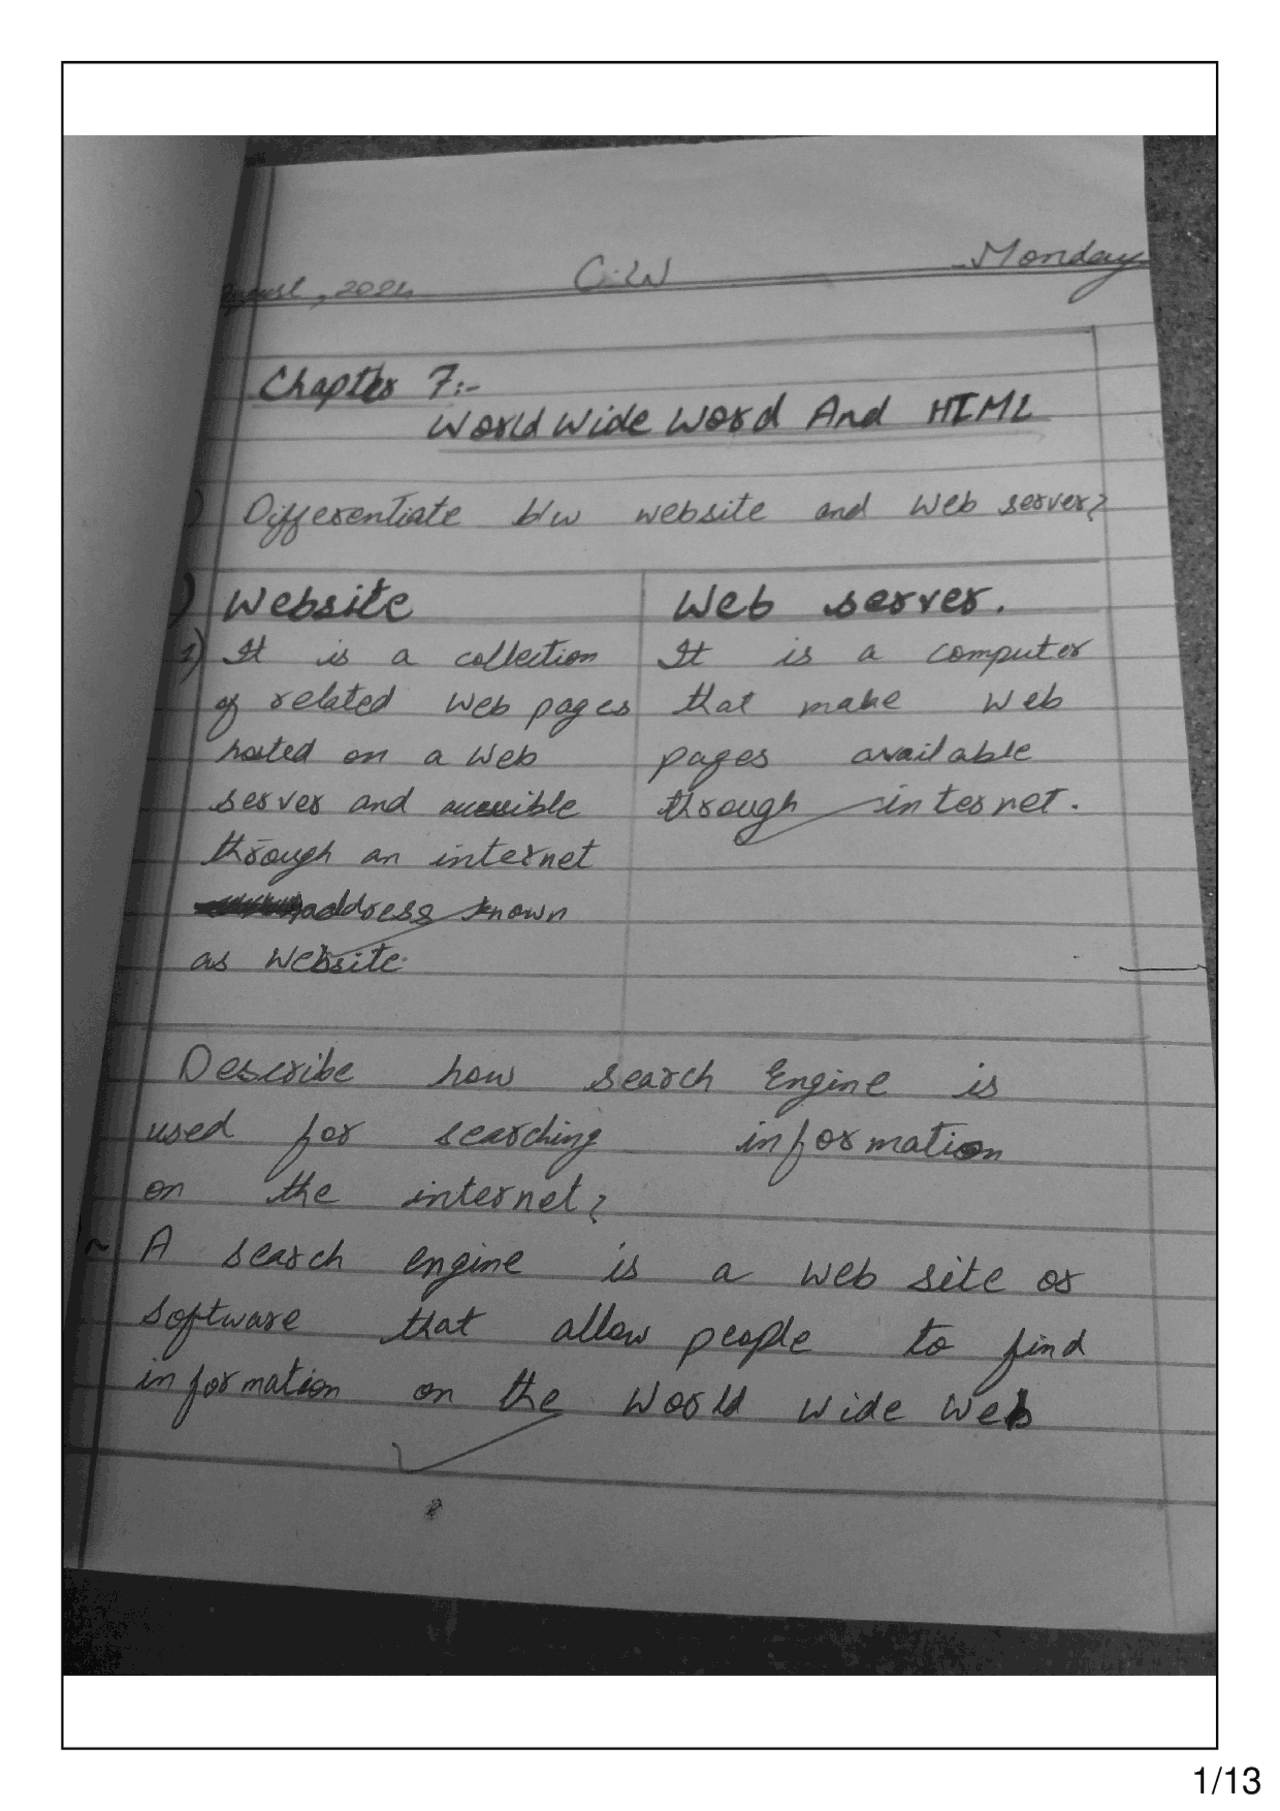 August, 2024 C.W Monday
Chapter 7:-
World Wide Word And HTML
Differentiate b/w website and Web server?
Website Web server.
1) It is a collection It is a computer
of related Web pages that make Web
hosted on a Web pages available
server and accessible through internet.
through an internet
address known
as Website.
Describe how search Engine is
used for searching information
on the internet?
A search engine is a web site or
software that allow people to find
information on the World wide Web
1/13